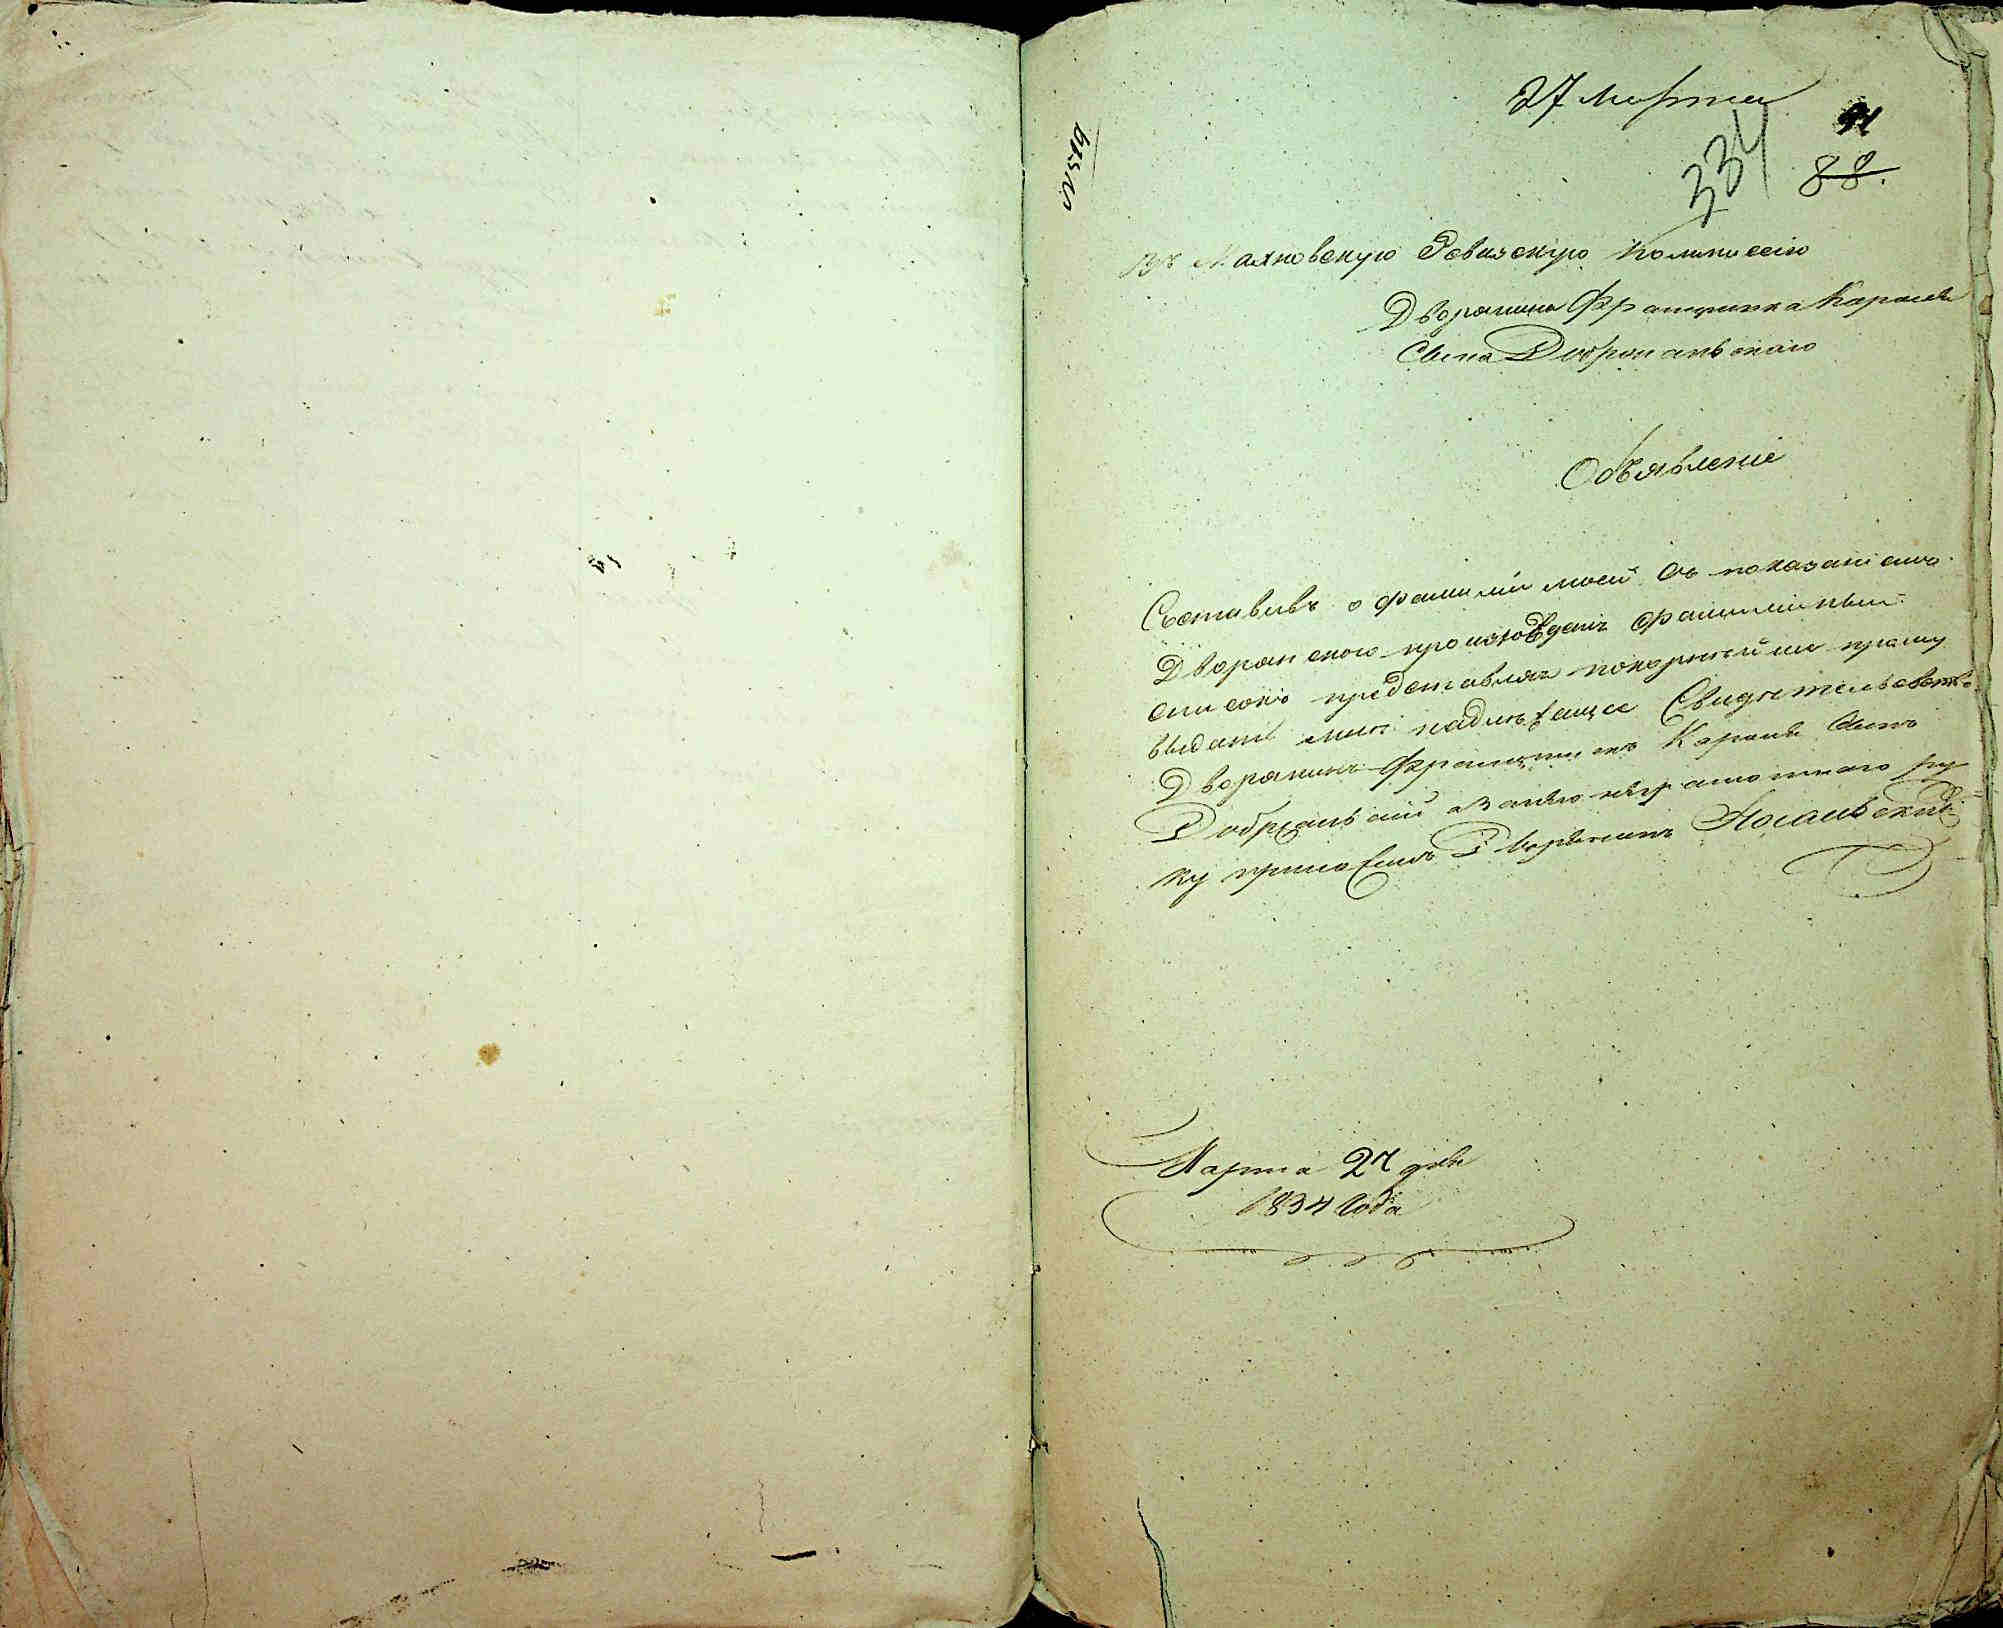 27 Марта
91
334
88.
Въ Махновскую Ревизскую Коммиссію
Дворянина Францишка Кароля
Сына Добржанскаго
Объявленіе
Составивъ о фамиліи моей съ показаніемъ
Дворянского произхожденія фамилійный
списокъ представляя покорнѣйше прошу
выдать мнѣ надлежащее Свидѣтельство
Дворянинъ Францишекъ Кароля Сынъ
Добржанскій а занего неграмотнаго ру
ку приложилъ Дворянинъ
Марта 27 дня
1834 Года